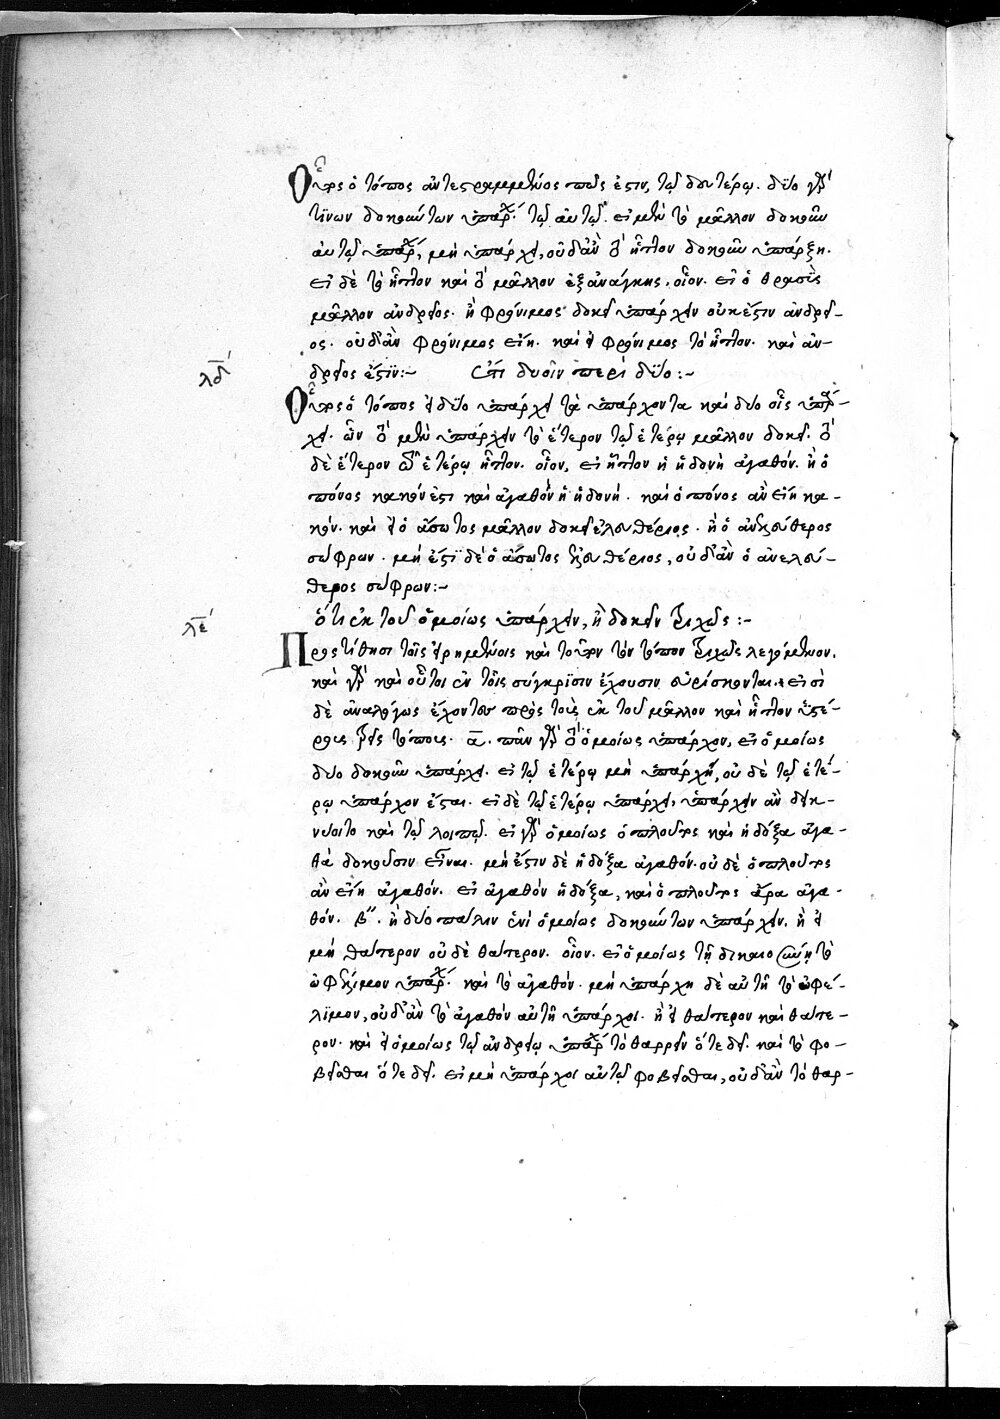 Οὗτος ὁ τόπος ἀντεστραμμένος πώς ἐστιν, τῷ δευτέρῳ. δύο γὰρ
τίνων δοκούντων ὑπάρχειν τῷ αὐτῷ. εἰ μὲν τὸ μᾶλλον δοκοῦν
αὐτῷ ὑπάρχειν, μὴ ὑπάρχει, οὐδ' ἂν τὸ ἧττον δοκοῦν ὑπάρξῃ.
εἰ δὲ τὸ ἧττον καὶ τὸ μᾶλλον ἐξανάγκης. οἷον. εἰ ὁ θρασὺς
μᾶλλον ἀνδρεῖος. ἢ φρόνιμος δοκεῖ ὑπάρχειν οὐκ ἔστιν ἀνδρεῖ-
ος. οὐδ' ἂν φρόνιμος εἴη. καὶ εἰ φρόνιμος τὸ ἧττον. καὶ ἀν-
δρεῖος ἐστίν:-
λδ΄ Ἐπὶ δυοῖν περὶ δύο:-
Οὗτος ὁ τόπος εἰ δύο ὑπάρχει τὰ ὑπάρχοντα καὶ δύο οἷς ὑπάρ-
χει. ὧν τὸ μὲν ὑπάρχειν τὸ ἕτερον τῷ ἑτέρῳ μᾶλλον δοκεῖ. τὸ
δὲ ἕτερον τῷ ἑτέρῳ ἧττον. οἷον, εἰ ἧττον ἡ ἡδονὴ ἀγαθόν. ἢ ὁ
πόνος κακόν ἐστι καὶ ἀγαθὸν ἡ ἡδονή. καὶ ὁ πόνος ἂν εἴη κα-
κόν. καὶ εἰ ὁ ἄσωτος μᾶλλον δοκεῖ ἐλευθέριος. ἢ ὁ ἀνελεύθερος
σώφρων. μὴ ἔστι δὲ ὁ ἄσωτος ἐλευθέριος, οὐδ' ἂν ὁ ἀνελεύ-
θερος σώφρων:-
λε΄ ὅτι ἐκ τοῦ ὁμοίως ὑπάρχειν, ἢ δοκεῖν τριχῶς:-
Προστίθησι τοῖς εἰρημένοις καὶ τοῦτον τὸν τόπον τριχῶς λεγόμενον.
καὶ γὰρ καὶ οὗτοι ἐν τοῖς σύγκρισιν ἔχουσιν εὑρίσκονται. εἰσὶ
δὲ ἀναλόγως ἔχοντες πρὸς τοὺς ἐκ τοῦ μᾶλλον καὶ ἧττον ὑστέ-
ρους τρεῖς τόπους. α. πᾶν γὰρ τὸ ὁμοίως ὑπάρχον, εἰ ὁμοίως
δυο δοκοῦν ὑπάρχει. εἰ τῷ ἑτέρῳ μὴ ὑπάρχῃ, οὐδὲ τῷ ἑτέ-
ρῳ ὑπάρχον ἔσται. εἰ δὲ τῷ ἑτέρῳ ὑπάρχει, ὑπάρχειν ἂν δεικ-
νύοιτο καὶ τῷ λοιπῷ. εἰ γὰρ ὁμοίως ὁ πλοῦτος καὶ ἡ δόξα ἀγα-
θὰ δοκοῦσιν εἶναι. μὴ ἔστιν δὲ ἡ δόξα ἀγαθόν. οὐδὲ ὁ πλοῦτος
ἂν εἴη ἀγαθόν. εἰ ἀγαθὸν ἡ δόξα, καὶ ὁ πλοῦτος ἄρα ἀγα-
θόν. β΄΄. ἢ δυο πάλιν ἑνὶ ὁμοίως δοκούντων ὑπάρχειν. ἢ εἰ
μὴ θάτερον οὐδὲ θάτερον. οἷον. εἰ ὁμοίως τῇ δικαιοσύνῃ τὸ
ὠφέλιμον ὑπάρχει. καὶ τὸ ἀγαθόν. μὴ ὑπάρχη δὲ αὐτῇ τὸ ὠφέ-
λιμον, οὐδ' ἂν τὸ ἀγαθὸν αὐτῇ ὑπάρχοι. ἢ εἰ θάτερον καὶ θάτε-
ρον. καὶ εἰ ὁμοίως τῷ ἀνδρείῳ ὑπάρχει τὸ θαρρεῖν ὅτε δεῖ. καὶ τὸ φο-
βεῖσθαι ὅτε δεῖ. εἰ μὴ ὑπάρχοι αὐτῷ φοβεῖσθαι, οὐδ' ἂν τὸ θαρ-